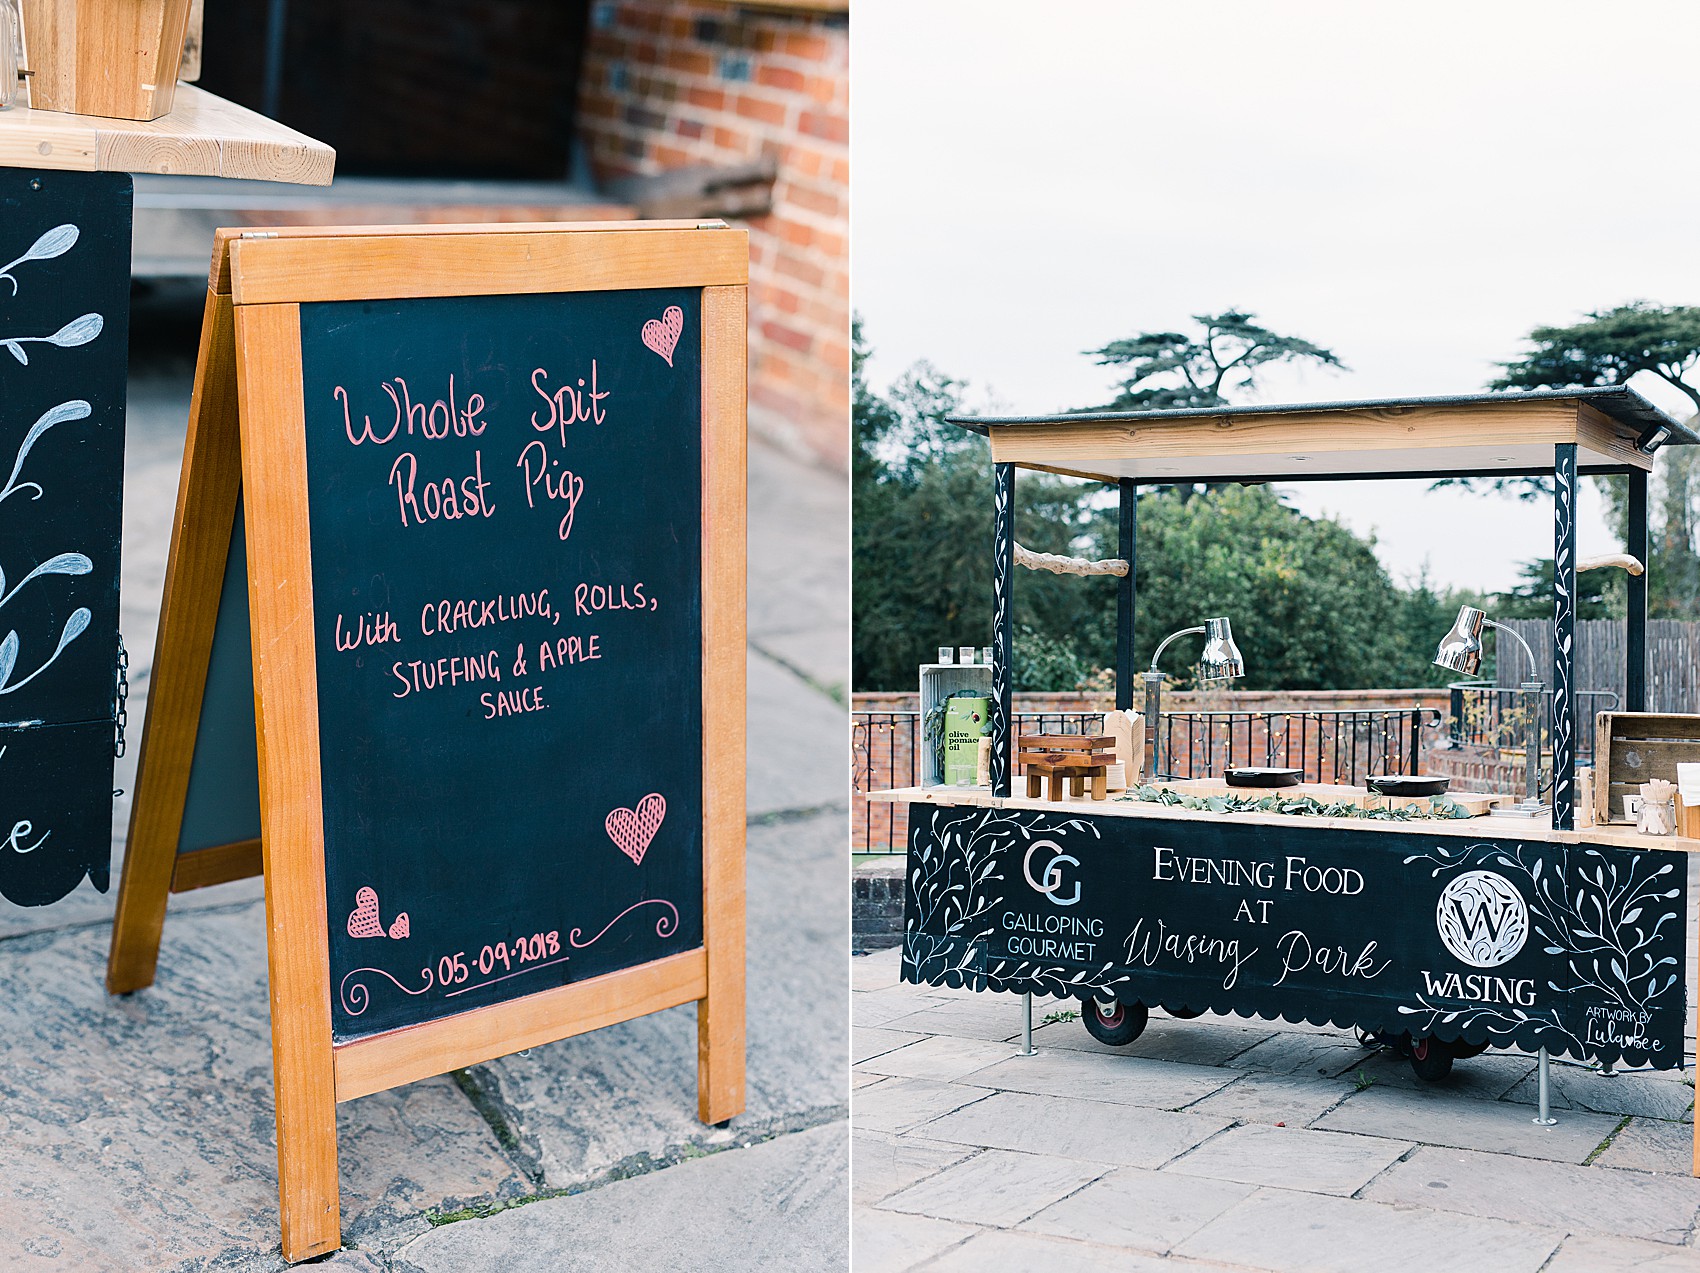 Whole Spit
Roast Pig
With CRACKLING, ROLLS,
STUFFING & APPLE
SAUCE.
05.09.2018
olive
pomace
oil
GG
GALLOPING
GOURMET
EVENING FOOD
AT
Wasing Park
W
WASING
ARTWORK BY
Lulabee